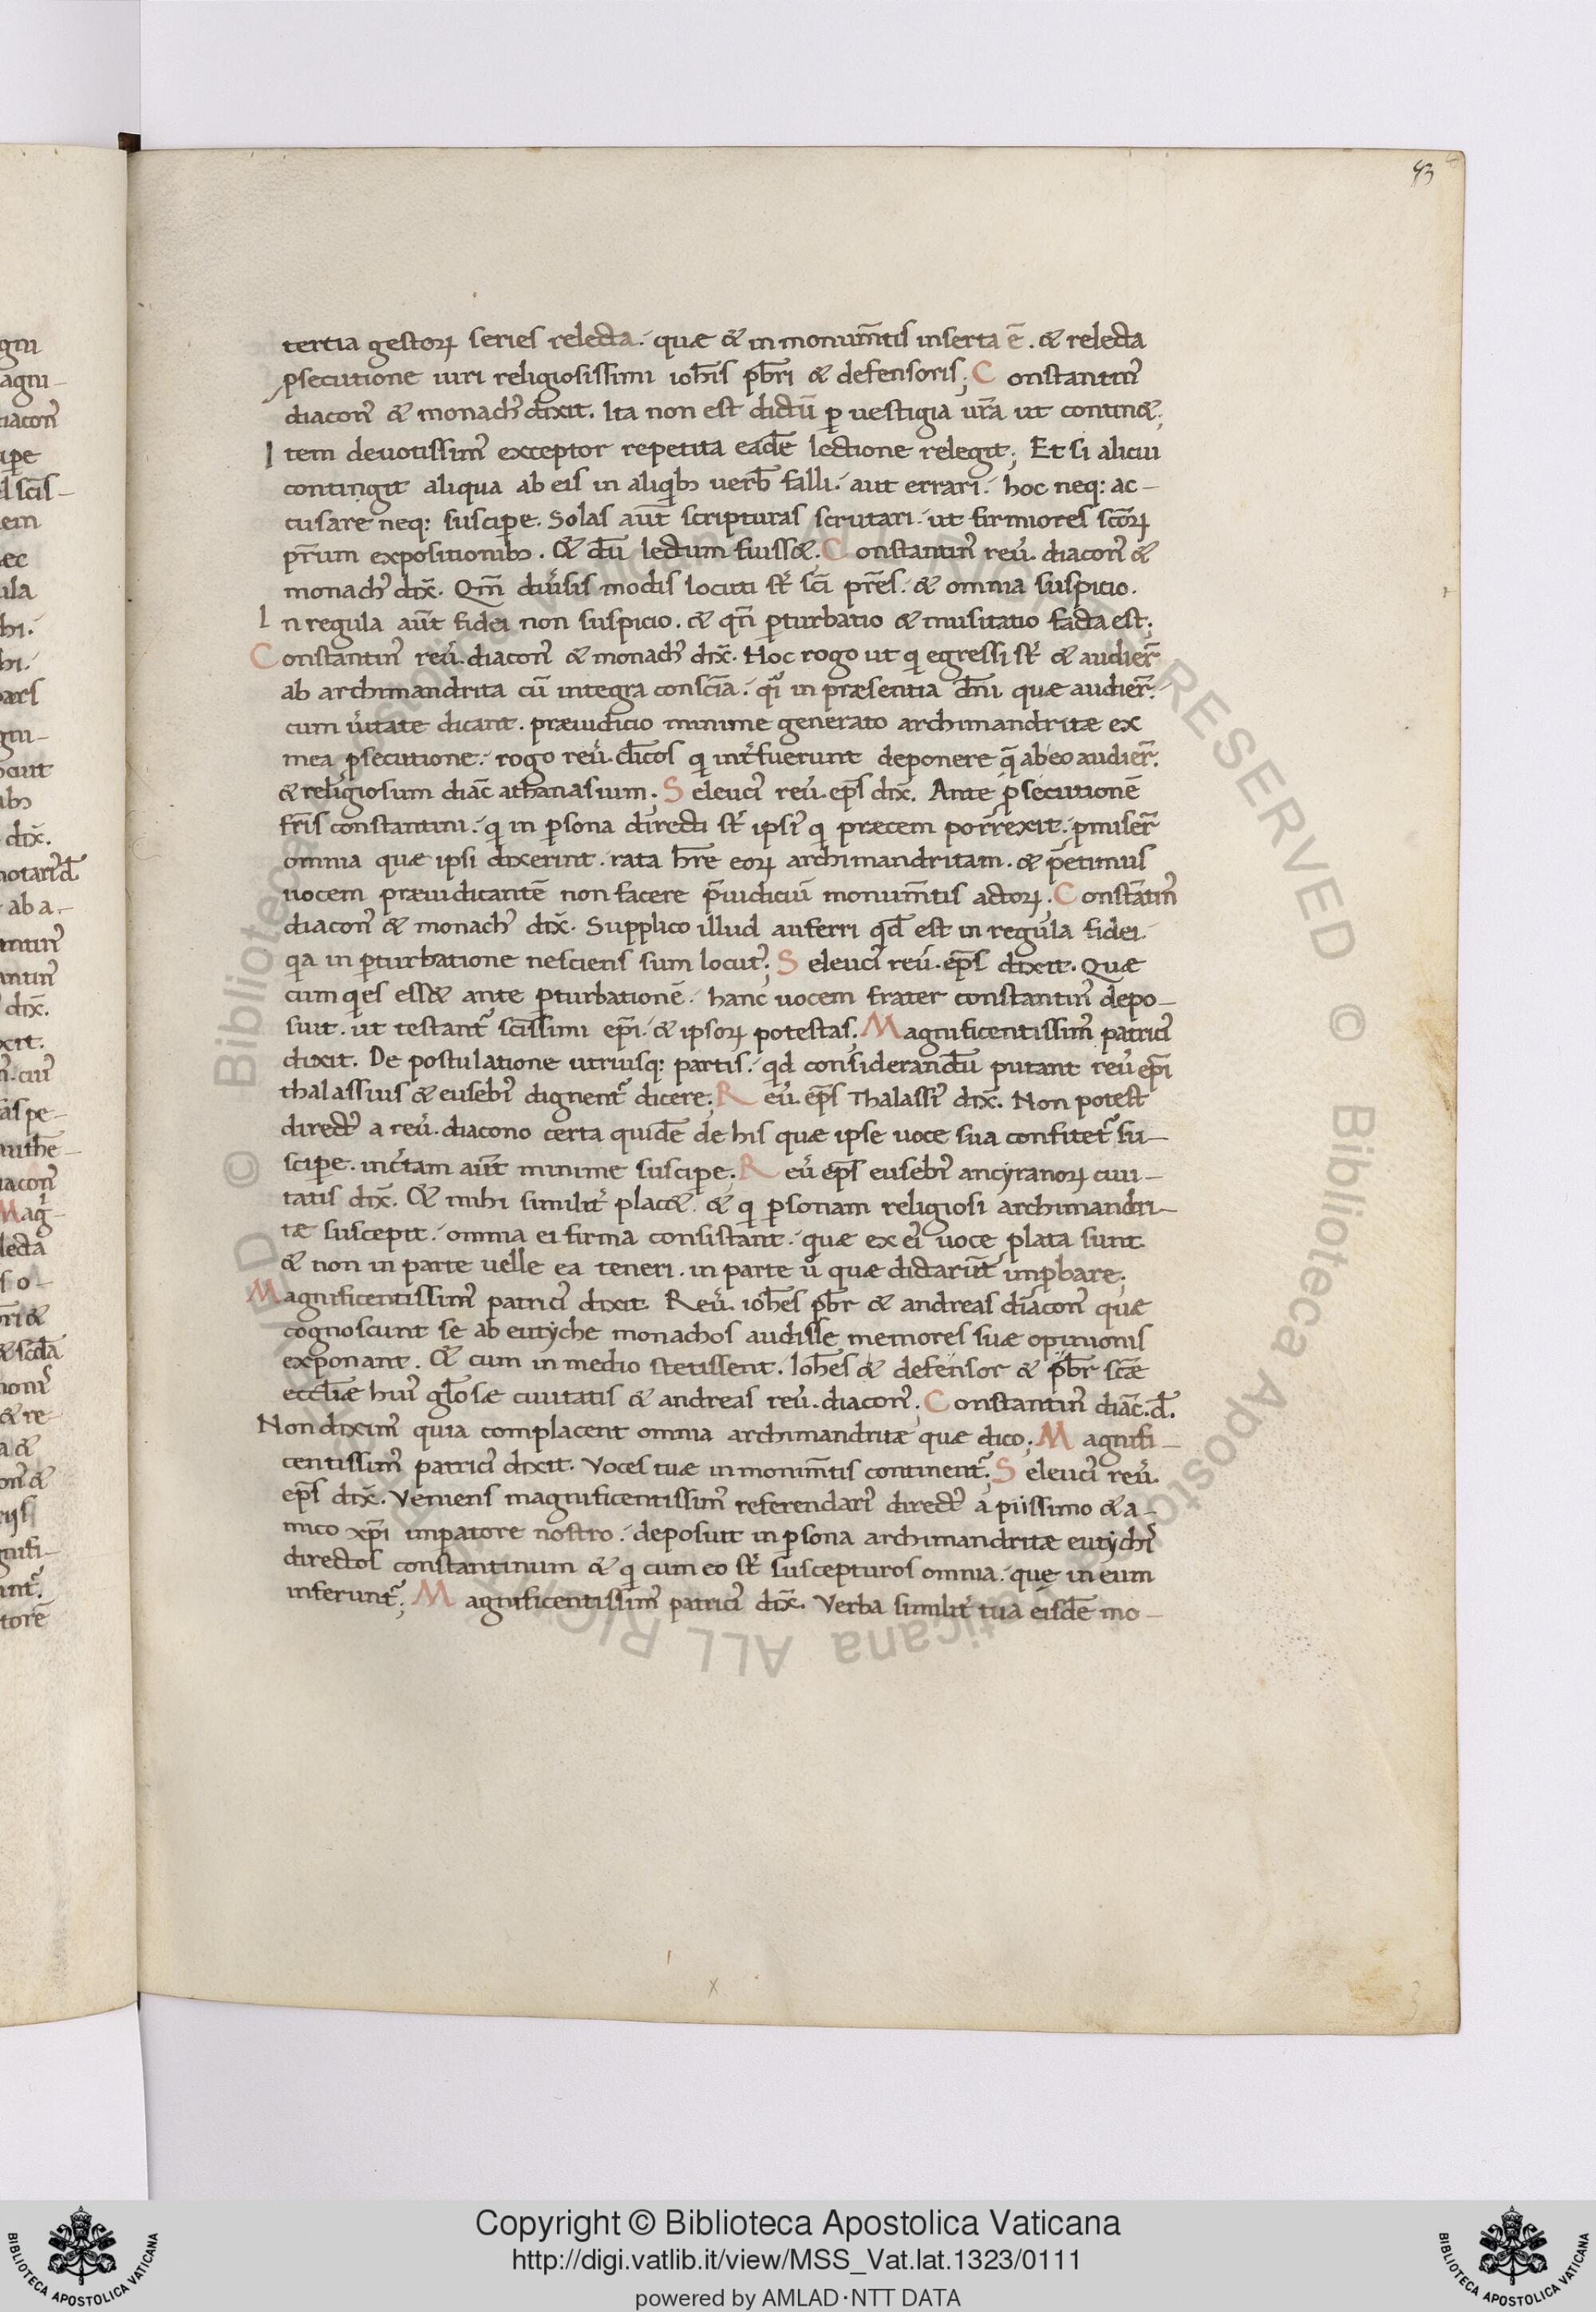 43
tertia gestoꝝ series relecta. quæ & in monum̅tis inserta e̅. & relecta
ꝓsecutione uiri religiosissimi ioh̅is pb̅ri & defensoris; Constantin᾿
diacon᾿ & monach᾿ dixit. Ita non est dictu̅ ꝑ uestigia ur̅a ut contin&;
Item deuotissim᾿ exceptor repetita eade̅ lectione relegit; Et si alicui
contingit aliqua ab eis in aliqib; uerb̅ falli. aut errari. hoc neq: ac-
cusare neq: suscipe. Solas aut̅ scripturas scrutari. ut firmiores sc̅oꝝ
pr̅um expositionib;. & du̅ lectum fuiss&. Constantin᾿ reu᾿. diacon᾿ &
monach᾿ dix̅. Qm̅ diu᾿sis modis locuti st᾿ sc̅i pr̅es. & omnia suspicio.
In regula aut̅ fidei non suspicio. & qn̅ ꝑturbatio & musitatio facta est;
Constantin᾿ reu᾿. diacon᾿ & monach᾿ dix̅. Hoc rogo ut qi egressi st᾿ & audier̅
ab archimandrita cu̅ integra consci̅a. qi᾿ in præsentia dn̅i quæ audier̅.
cum u᾿itate dicant. præiudicio minime generato archimandritæ ex
mea ꝓsecutione. rogo reu᾿. cl̅icos qi int᾿fuerunt deponere q̅ ab eo audier̅.
& religiosum diac̅ athanasium; Seleuci᾿ reu᾿. ep̅s dix̅. Ante ꝓsecutione̅
fr̅is constantini. qi in ꝑsona directi st᾿ ipsi᾿ qi præcem porrexit. ꝓmiser̅
omnia quæ ipsi dixerint. rata hr̅e eoꝝ archimandritam. & p̅etimus
uocem præiudicante̅ non facere p̅iudiciu̅ monum̅tis actoꝝ. Constantin᾿
diacon᾿ & monach᾿ dix̅. Supplico illud auferri qd̅ est in regula fidei.
qia in ꝑturbatione nesciens sum locut᾿; Seleuci᾿ reu᾿. ep̅s dixit. Quæ
cum qies ess& ante ꝑturbatione̅. hanc uocem frater constantin᾿ depo-
suit. ut testant᾿ sc̅issimi ep̅i. & ipsoꝝ potestas; Magnificentissim᾿ patrici᾿
dixit. De postulatione utriusq: partis. qid considerandu̅ putant reu᾿ ep̅i
thalassius & eusebi᾿ dignent᾿ dicere; Reu᾿. ep̅s Thalassi᾿ dix̅. Non potest
direct᾿ a reu᾿. diacono certa quide̅ de his quæ ipse uoce sua confitet᾿ su-
scipe. inc᾿tam aut̅ minime suscipe; Reu᾿ ep̅s eusebi᾿ ancyranoꝝ ciui-
tatis dix̅. & mihi similit᾿ plac&. & qi ꝑsonam religiosi archimandri-
tæ suscepit. omnia ei firma consistant. quæ ex ei᾿ uoce plata sunt.
& non in parte uelle ea teneri. in parte u᾿ quæ dictarit̅ imꝓbare;
Magnificentissim᾿ patrici᾿ dixit. Reu᾿. ioh̅es pb̅r & andreas diacon᾿ quæ
cognoscunt se ab eutyche monachos audisse memores suæ opinionis
exponant. & cum in medio stetissent. Ioh̅es & defensor & pb̅r sc̅æ
eccl̅iæ hui᾿ gl̅osæ ciuitatis & andreas reu᾿. diacon᾿; Constantin᾿ diac̅. d̅.
Non dixim᾿ quia complacent omnia archimandritæ quæ dico; Magnifi-
centissim᾿ patrici᾿ dixit. Voces tuæ in monim̅tis continent᾿. Seleuci᾿ reu᾿.
ep̅s dix̅. Veniens magnificentissim᾿ referendari᾿ direct᾿ a piissimo & a-
mico xp̅i impatore nostro. deposuit in ꝑsona archimandritæ eutychi᾿
directos constantinum & qi cum eo st᾿ suscepturos omnia. quę in eum
inferunt᾿; Magnificentissim᾿ patrici᾿ dix̅. Verba similit᾿ tua eisde̅ mo-
Copyright © Biblioteca Apostolica Vaticana
http://digi.vatlib.it/view/MSS_Vat.lat.1323/0111
powered by AMLAD·NTT DATA